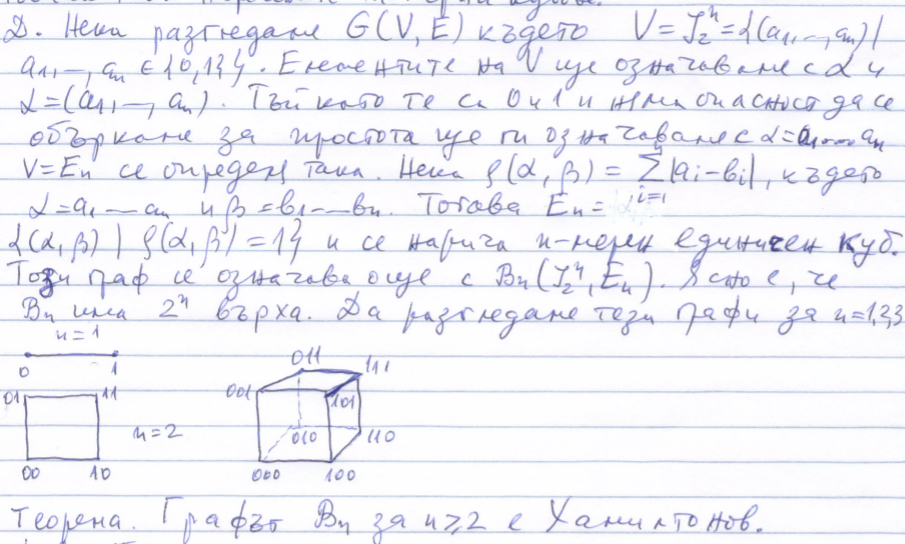 Д. Нека разгледаме G(V,E) където V=J₂ⁿ={(a₁,-,aₙ)|
a₁,-,aₙ ∈{0,1}}. Елементите на V ще означаваме с α и
α=(a₁,-,aₙ). Тъй като те са 0 и 1 и няма опасност да се
объркаме за простота ще ги означаваме с α=a₁...aₙ
V=Eₙ се определя така. Нека ρ(α,β)=∑ⁿᵢ₌₁|aᵢ-bᵢ|, където
α=a₁--aₙ и β=b₁--bₙ. Тогава Eₙ=
{(α,β)|ρ(α,β)=1} и се нарича n-мерен единичен куб.
Този граф се означава още с Bₙ(J₂ⁿ,Eₙ). Ясно е, че
Bₙ има 2ⁿ върха. Да разгледаме тези графи за n=1,2,3
n=1
0 1
01 11
n=2
00 10
011 111
001 101
010 110
000 100
Теорема. Графът Bₙ за n≥2 е Хамилтонов.